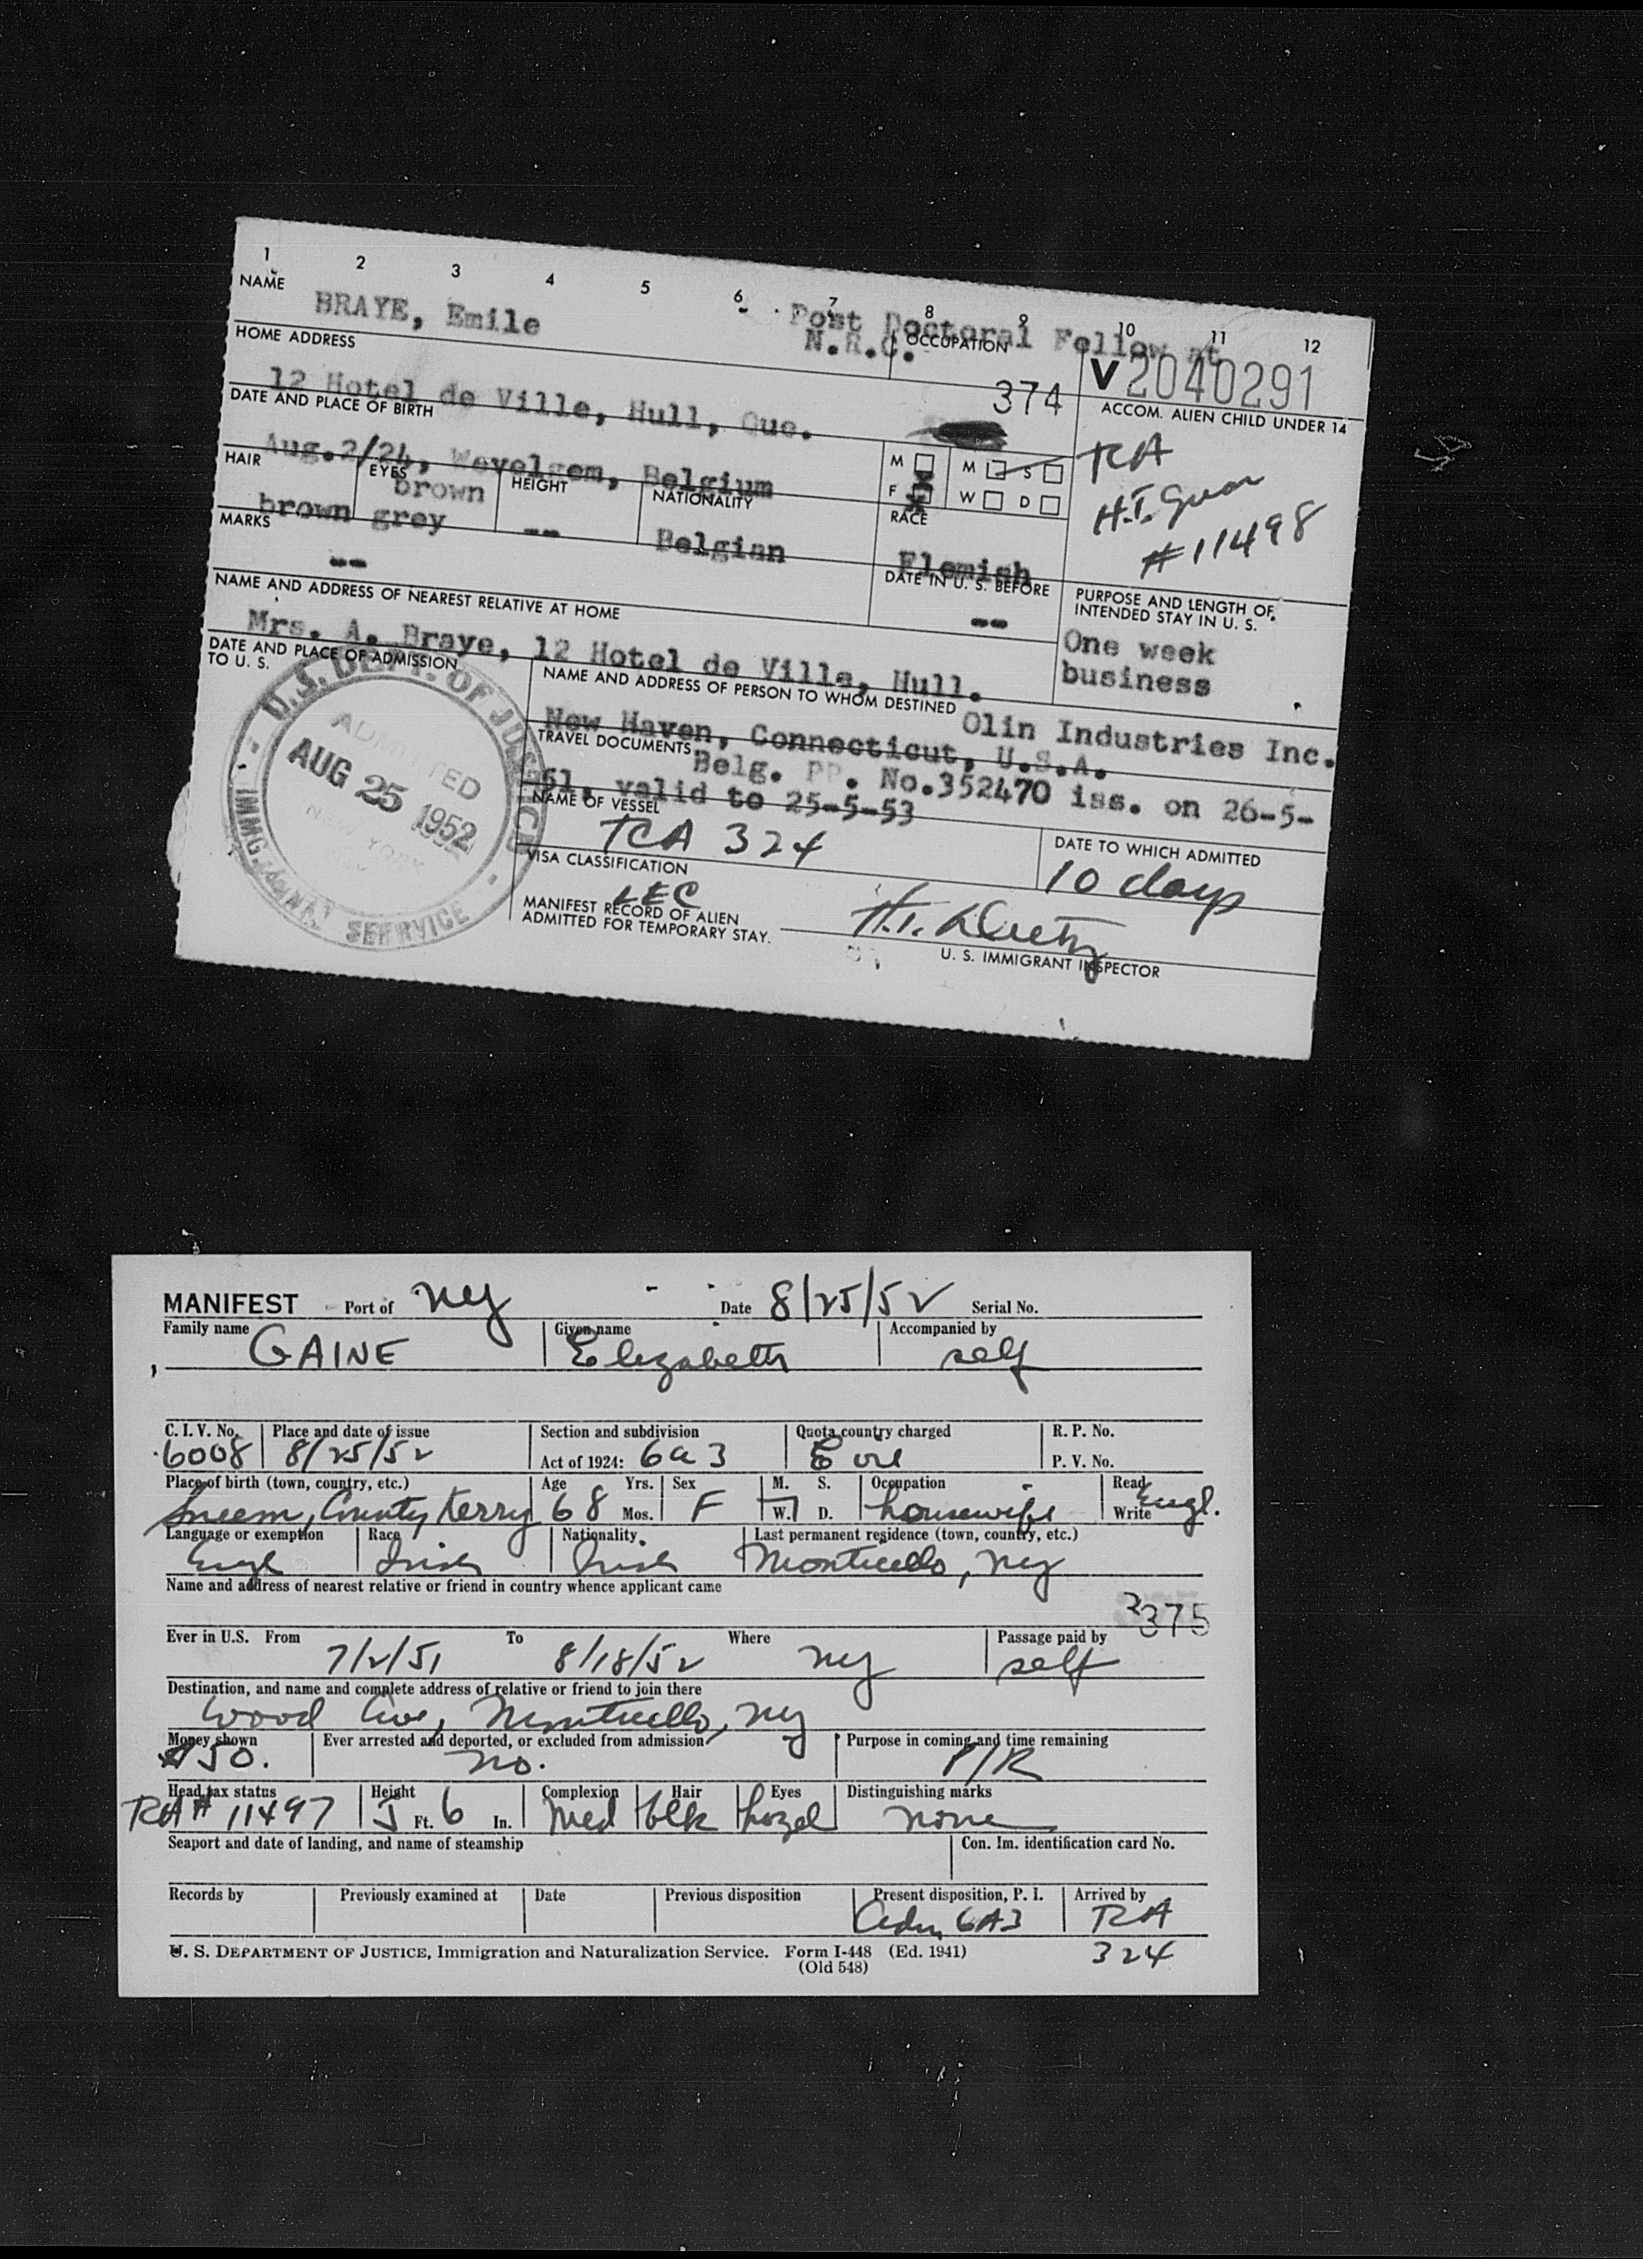 1 2 3 4 5 6 7 8 9 10 11 12
NAME BRAYE, Emile
Post Doctoral Fellow at
N.R.C. OCCUPATION
HOME ADDRESS
374 V2040291
12 Hotel de Ville, Hull, Que.
ACCOM. ALIEN CHILD UNDER 14
DATE AND PLACE OF BIRTH
Aug.2/24, Wevelgem, Belgium
M M S
F W D
RA
H.T.
#11498
HAIR EYES HEIGHT NATIONALITY RACE
brown
brown grey -- Belgian Flemish
MARKS
--
DATE IN U. S. BEFORE
--
PURPOSE AND LENGTH OF
INTENDED STAY IN U. S.
One week
business
NAME AND ADDRESS OF NEAREST RELATIVE AT HOME
Mrs. A. Braye, 12 Hotel de Ville, Hull.
DATE AND PLACE OF ADMISSION
TO U. S.
U.S. DEPT. OF JUSTICE
ADMITTED
AUG 25 1952
NEW YORK
IMMG. & NAT. SERVICE
NAME AND ADDRESS OF PERSON TO WHOM DESTINED Olin Industries Inc.
New Haven, Connecticut, U.S.A.
TRAVEL DOCUMENTS Belg. PP. No.352470 iss. on 26-5-
51, valid to 25-5-53
NAME OF VESSEL
TCA 324
DATE TO WHICH ADMITTED
10 days
VISA CLASSIFICATION
MANIFEST RECORD OF ALIEN
ADMITTED FOR TEMPORARY STAY.
U. S. IMMIGRANT INSPECTOR
MANIFEST Port of NY Date 8/25/52 Serial No.
Family name Given name Accompanied by
GAINE Elizabeth self
C. I. V. No. Place and date of issue Section and subdivision Quota country charged R. P. No.
6008 8/25/52 Act of 1924: 6a3 Eire P. V. No.
Place of birth (town, country, etc.) Age Yrs. Sex M. S. Occupation Read
Sneem, County Kerry 68 Mos. F W. D. housewife Write Engl.
Language or exemption Race Nationality Last permanent residence (town, country, etc.)
Engl Irish Irish Monticello, NY
Name and address of nearest relative or friend in country whence applicant came
2375
Ever in U.S. From To Where Passage paid by
7/2/51 8/18/52 NY self
Destination, and name and complete address of relative or friend to join there
Wood Ave, Monticello, NY
Money shown Ever arrested and deported, or excluded from admission Purpose in coming and time remaining
$50. no. P/R
Head tax status Height Complexion Hair Eyes Distinguishing marks
RA# 11497 5 Ft. 6 In. Med blk hazel none
Seaport and date of landing, and name of steamship Con. Im. identification card No.
Records by Previously examined at Date Previous disposition Present disposition, P. I. Arrived by
Adm 6A3 TCA
U. S. DEPARTMENT OF JUSTICE, Immigration and Naturalization Service. Form I-448 (Ed. 1941) 324
(Old 548)